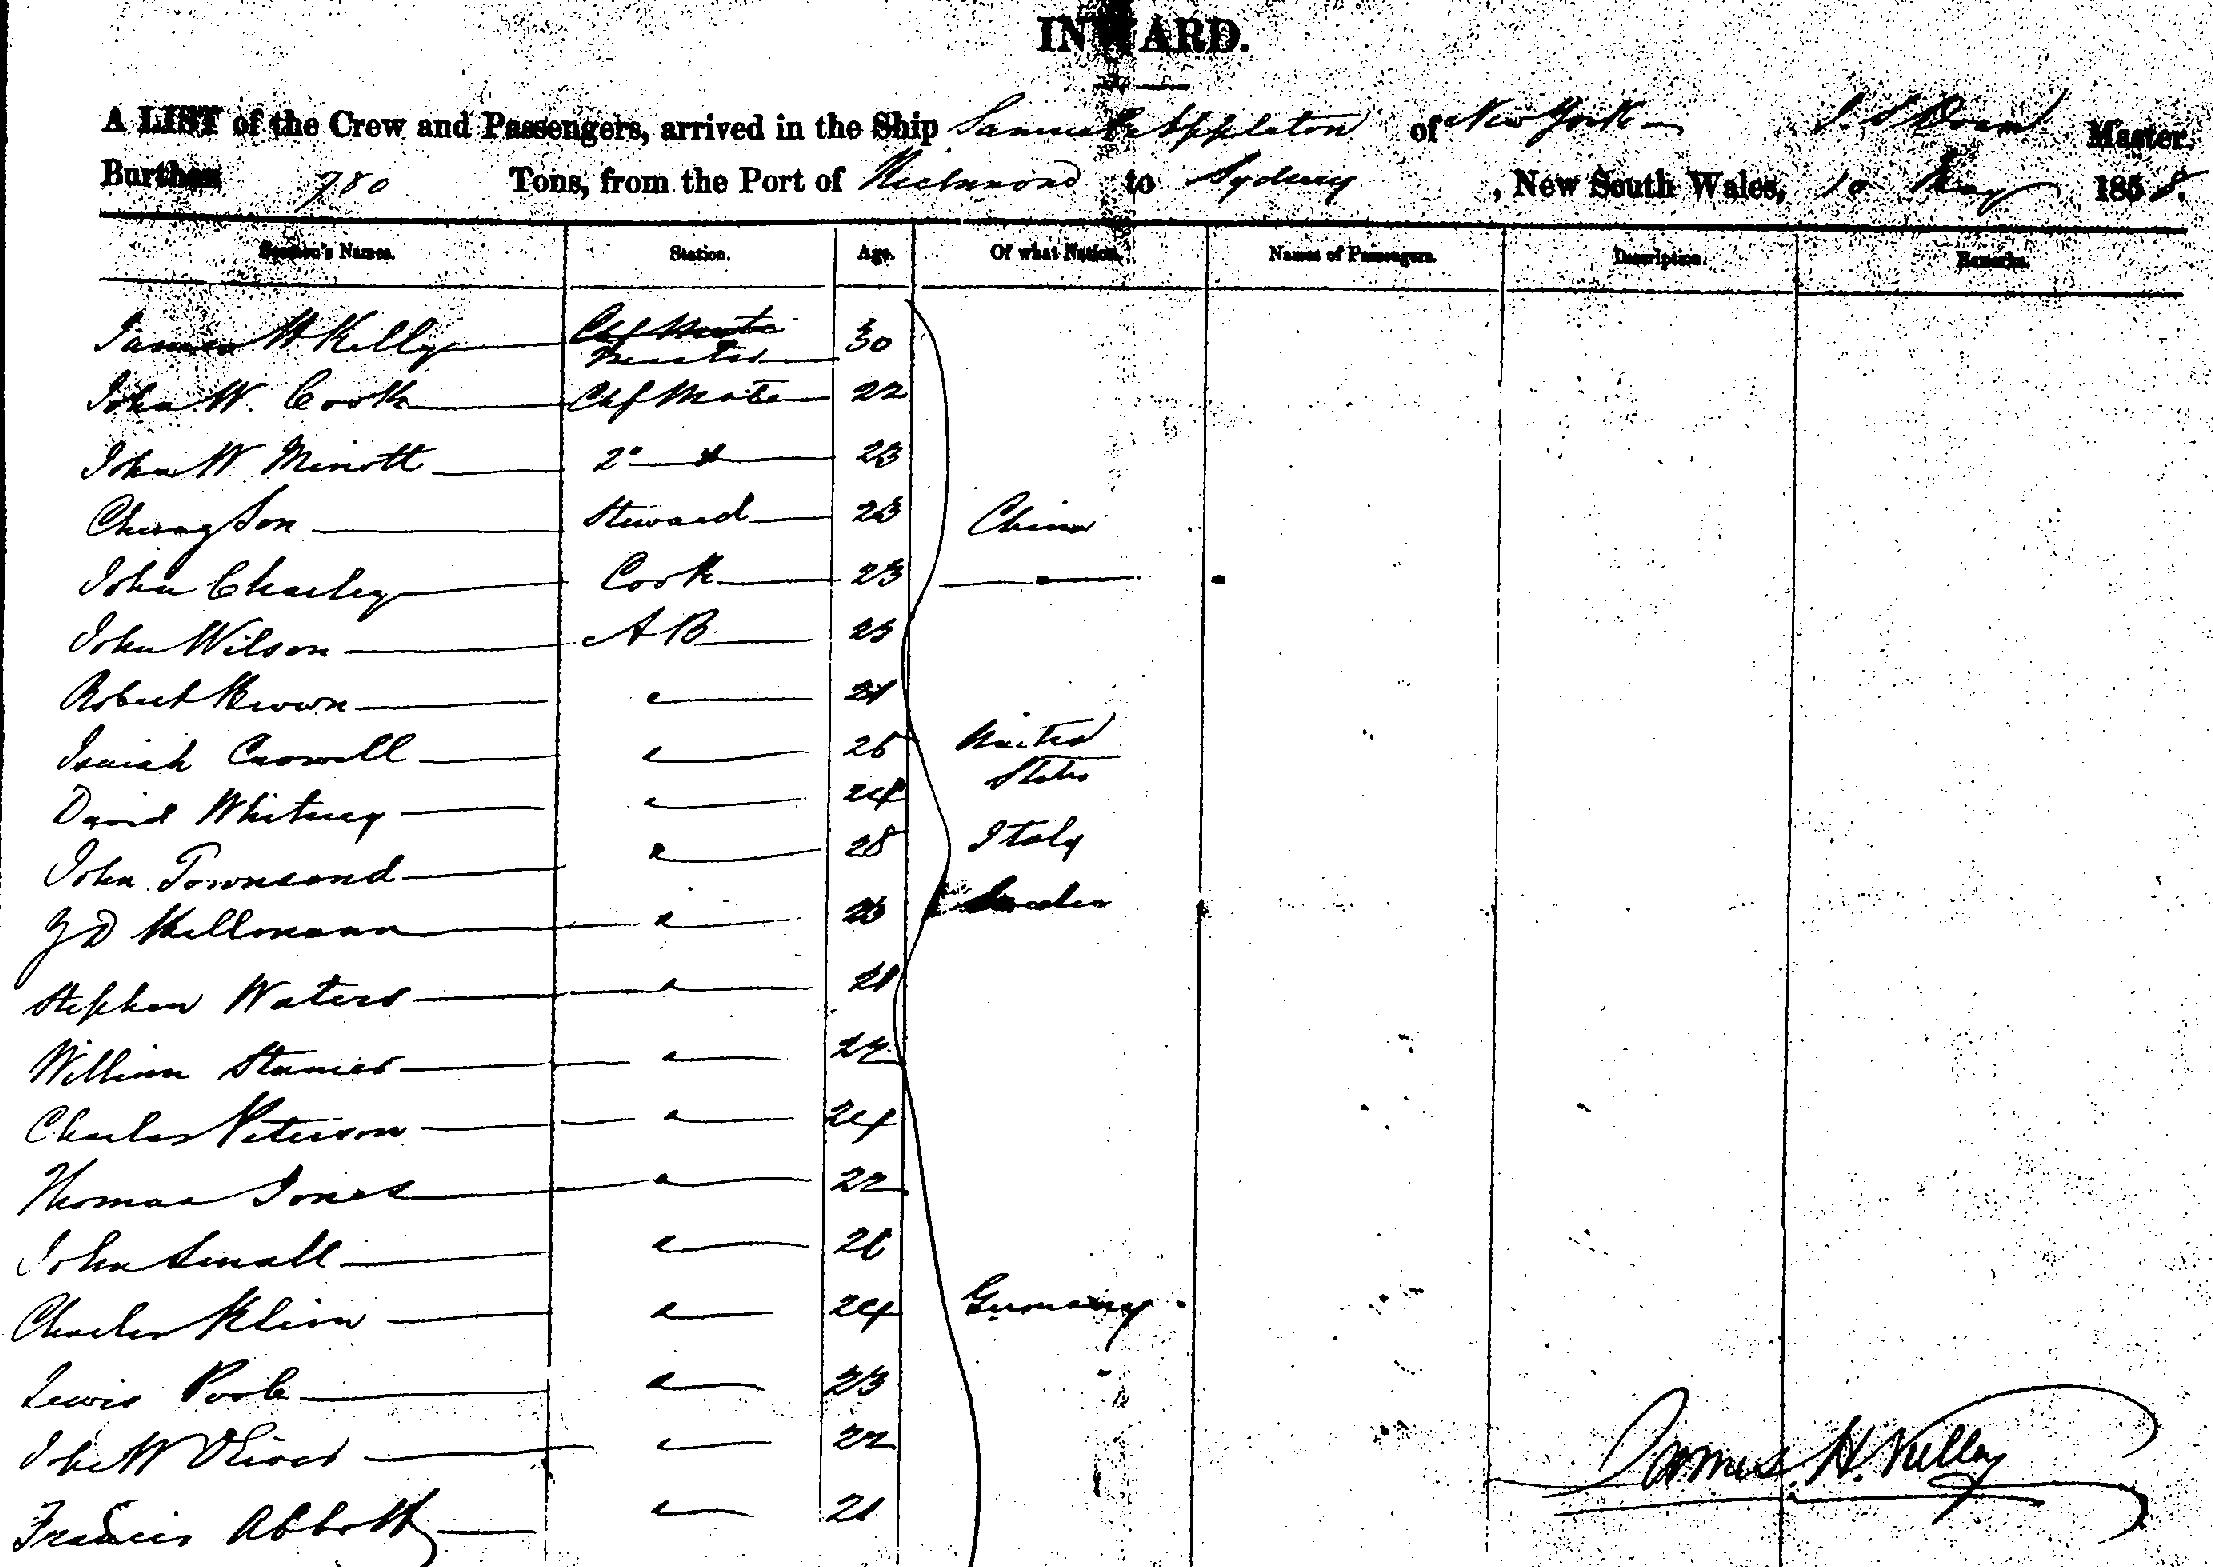 INWARD.
A LIST of the Crew and Passengers, arrived in the Ship Samuel Appleton of New York Master,
Burthen 780 Tons, from the Port of Richmond to Sydney, New South Wales, 10 May 1858.
Seamen's Names. Station. Age. Of what Nation. Names of Passengers. Description. Remarks.
James H Kelly Chf Mate Master 30
John W. Cook Chf Mate 22
John W Minott 2" " 23
Chung Son Steward 23 China
John Charley Cook 23 "
John Wilson A B 25
Robert Brown " 21
Isaiah Crowell " 25 United States
David Whitney " 24
John Townsend " 28 Italy
Hellmann " 23
Stephen Waters " 21
William " 22
Charles Peterson " 24
Thomas Jones " 22
John Small " 26
Charles Klein " 24 Germany
Lewis Poole " 23
John W Oliver " 22
Francis Abbott " 21
James H. Kelley